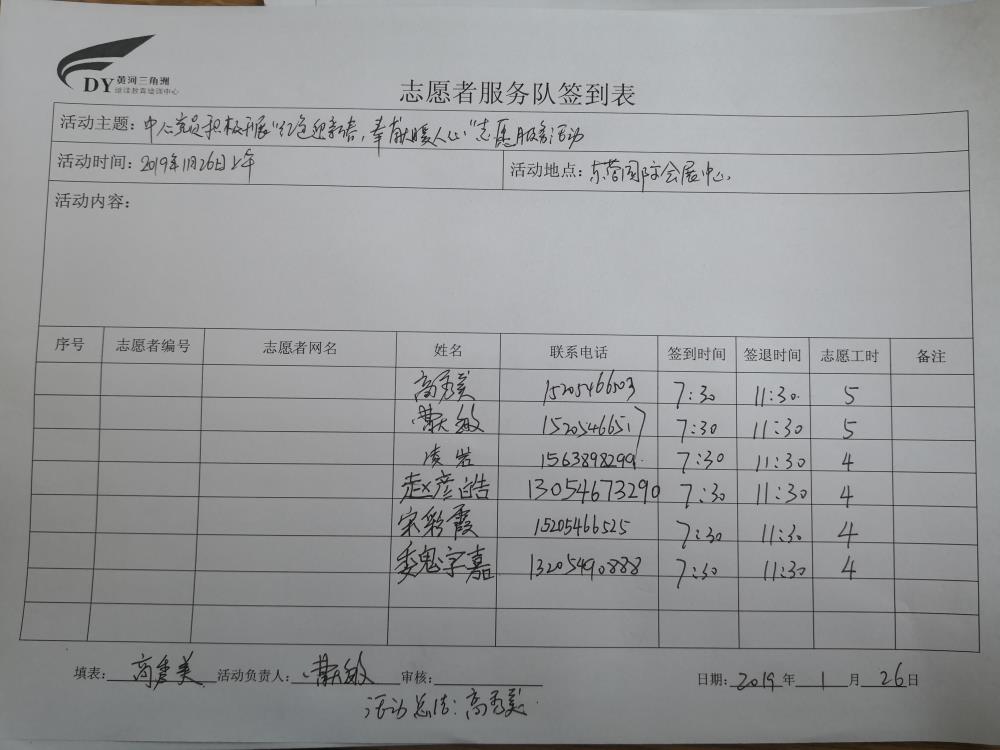 DY 黄河三角洲
继续教育培训中心
志愿者服务队签到表
活动主题：中心党员积极开展"红色迎新春，奉献暖人心"志愿服务活动
活动时间：2019年11月26日上午 活动地点：东营国际会展中心
活动内容：
序号 志愿者编号 志愿者网名 姓名 联系电话 签到时间 签退时间 志愿工时 备注
高秀美 15205466503 7:30 11:30 5
敏 15205466517 7:30 11:30 5
凌岩 1563898299 7:30 11:30 4
赵彦皓 13054673290 7:30 11:30 4
宋彩霞 15205466525 7:30 11:30 4
魏宇嘉 13205490888 7:30 11:30 4
填表：高秀美 活动负责人：敏 审核： 日期：2019年1月26日
活动总结：高秀美